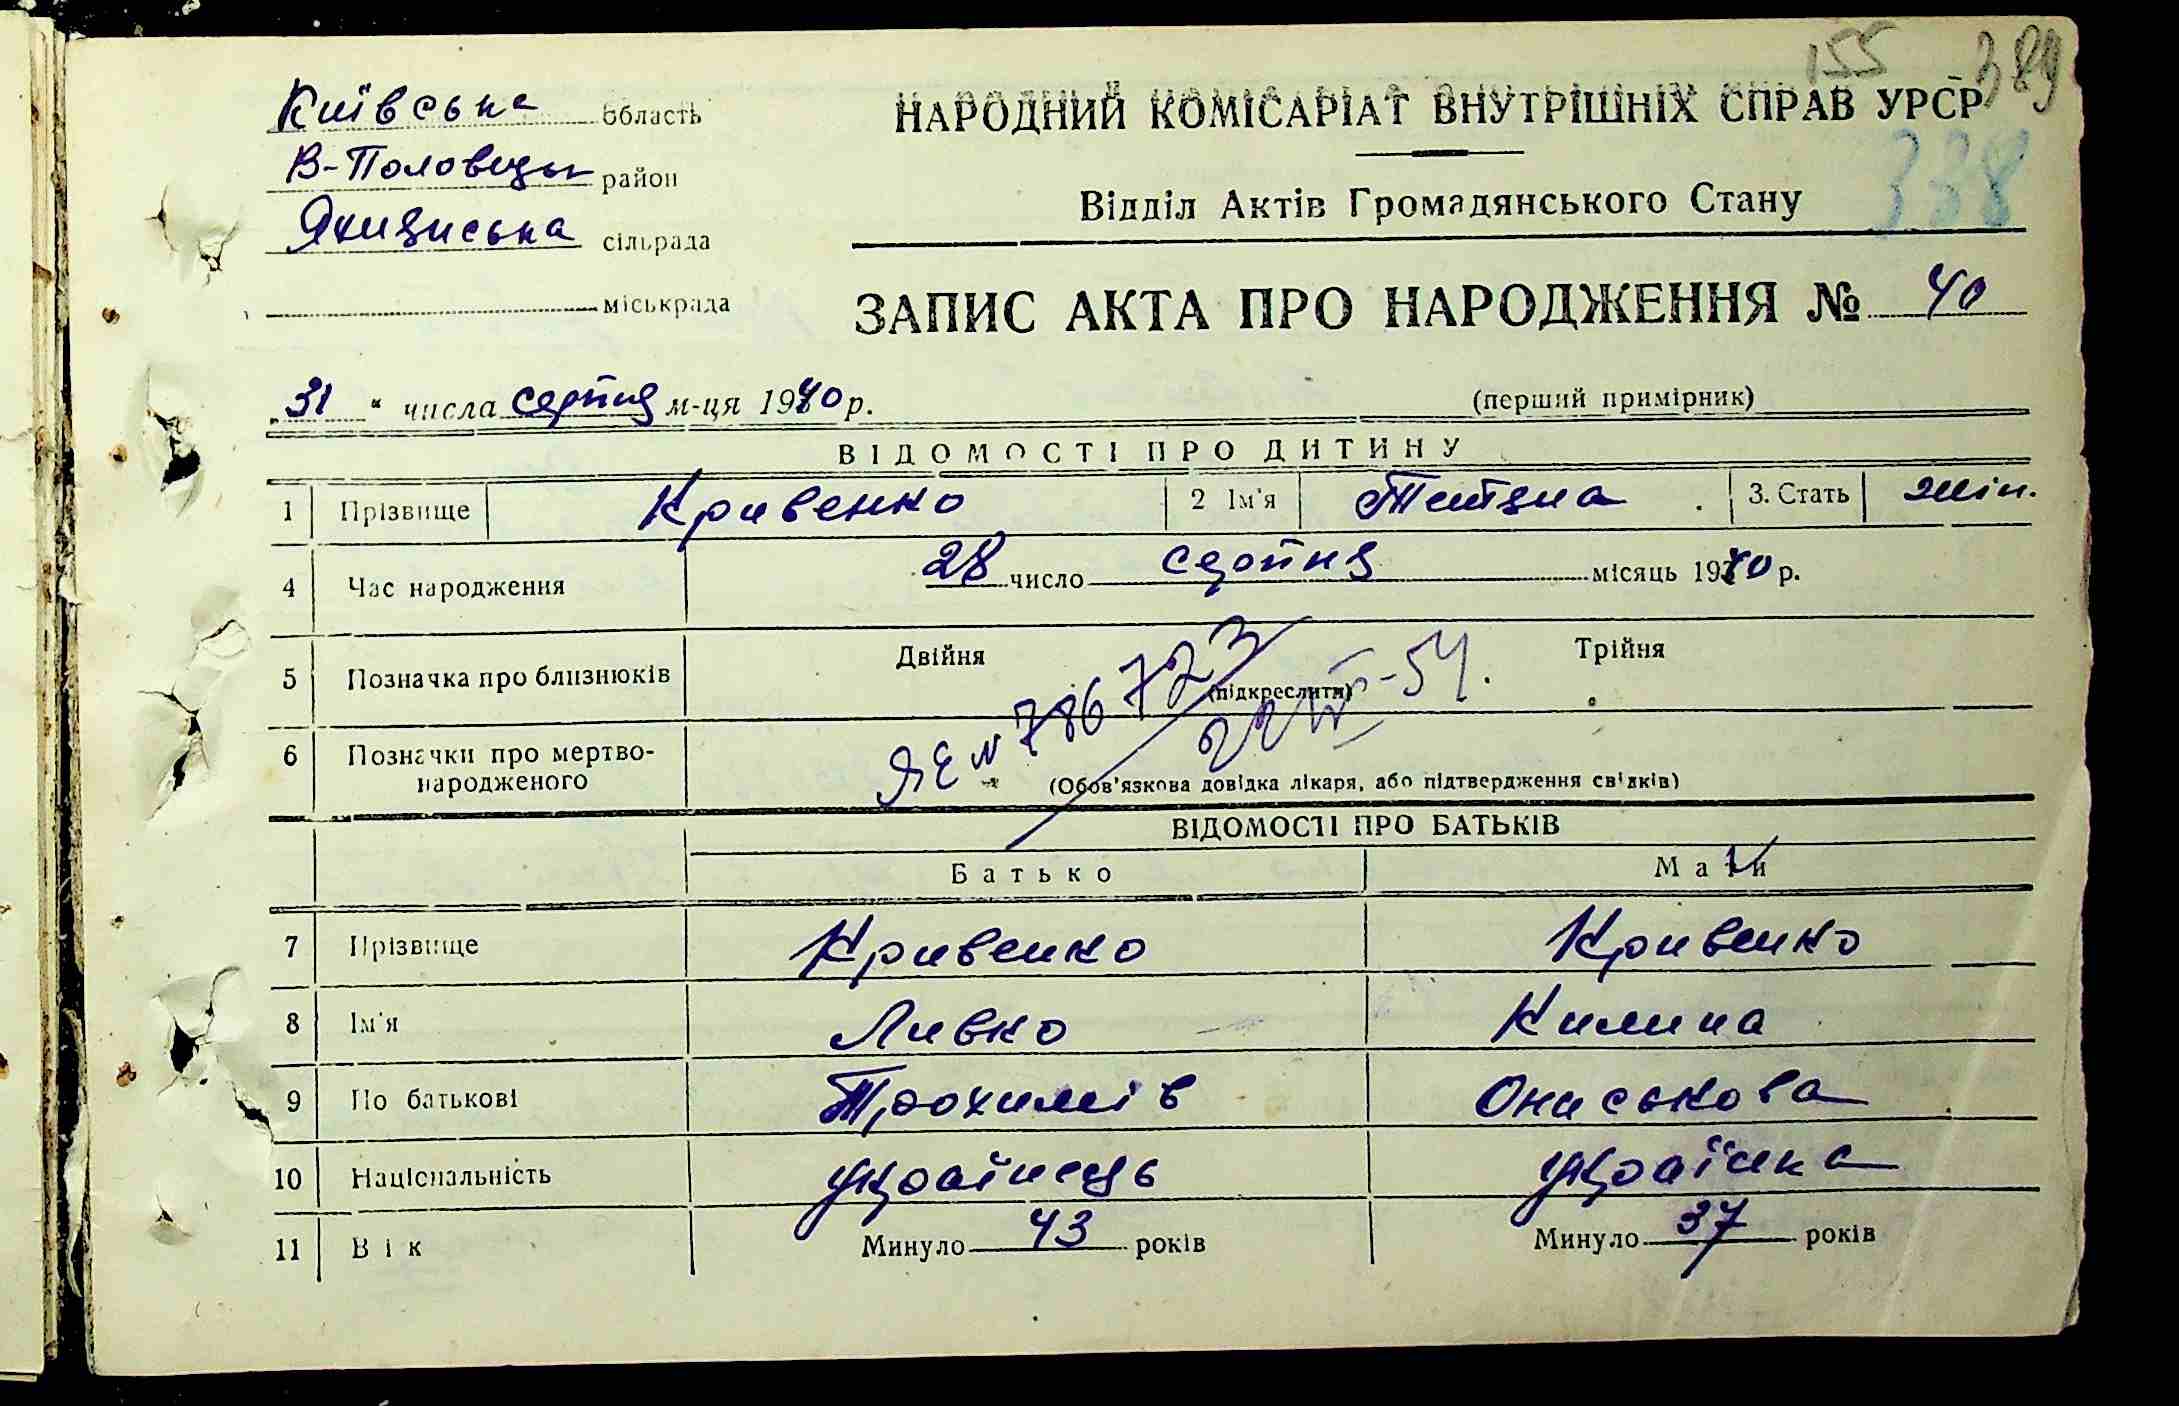 155 389
Київська область
В-Половецьк район
Яхнинська сільрада
міськрада
НАРОДНИЙ КОМІСАРІАТ ВНУТРІШНІХ СПРАВ УРСР
338
Відділ Актів Громадянського Стану
ЗАПИС АКТА ПРО НАРОДЖЕННЯ № 40
31 " числа серпня м-ця 1940 р. (перший примірник)
ВІДОМОСТІ ПРО ДИТИНУ
1 Прізвище Кривенко 2 Ім'я Тетяна 3. Стать жін.
4 Час народження 28 число серпня місяць 1940 р.
5 Позначка про близнюків Двійня Трійня
(підкреслити)
ЯЕ № 786723 22 VII-54.
6 Позначки про мертво-
народженого (Обов'язкова довідка лікаря, або підтвердження свідків)
ВІДОМОСТІ ПРО БАТЬКІВ
Батько Мати
7 Прізвище Кривенко Кривенко
8 Ім'я Ливко Килина
9 По батькові Трохимів Ониськова
10 Національність українець українка
11 Вік Минуло 43 років Минуло 37 років